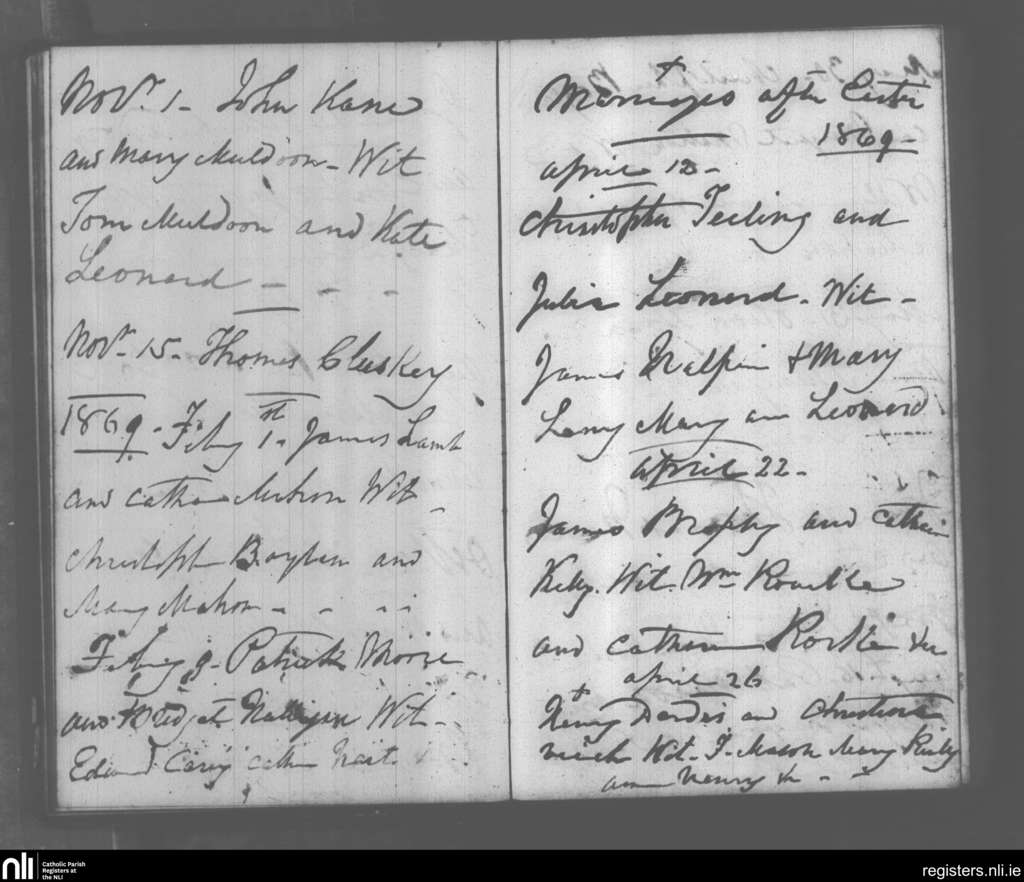 Novr. 1 - John Kane
and Mary Muldoon - Wit
Tom Muldoon and Kate
Leonard - - -
Novr. 15 - Thomas Cluskey
1869 - Feby 1st - James Lamb
and Mahon Wit -
Christoph and
Mary Mahon - - - -
Feby 9 - Patrick Moore
and Bridget Wit -
Edward Carey
+
Marriages after Easter
1869 -
April 12 -
Christopher Teeling and
Julia Leonard - Wit -
James & Mary
Mary Leonard
April 22 -
James Brophy and
Kelly. Wit. Wm Rourke
and Rorke &c
April 26
Henry Dardis and
Wit. T. Mason Mary Reilly
&c - -
nli Catholic Parish
Registers at
the NLI
registers.nli.ie